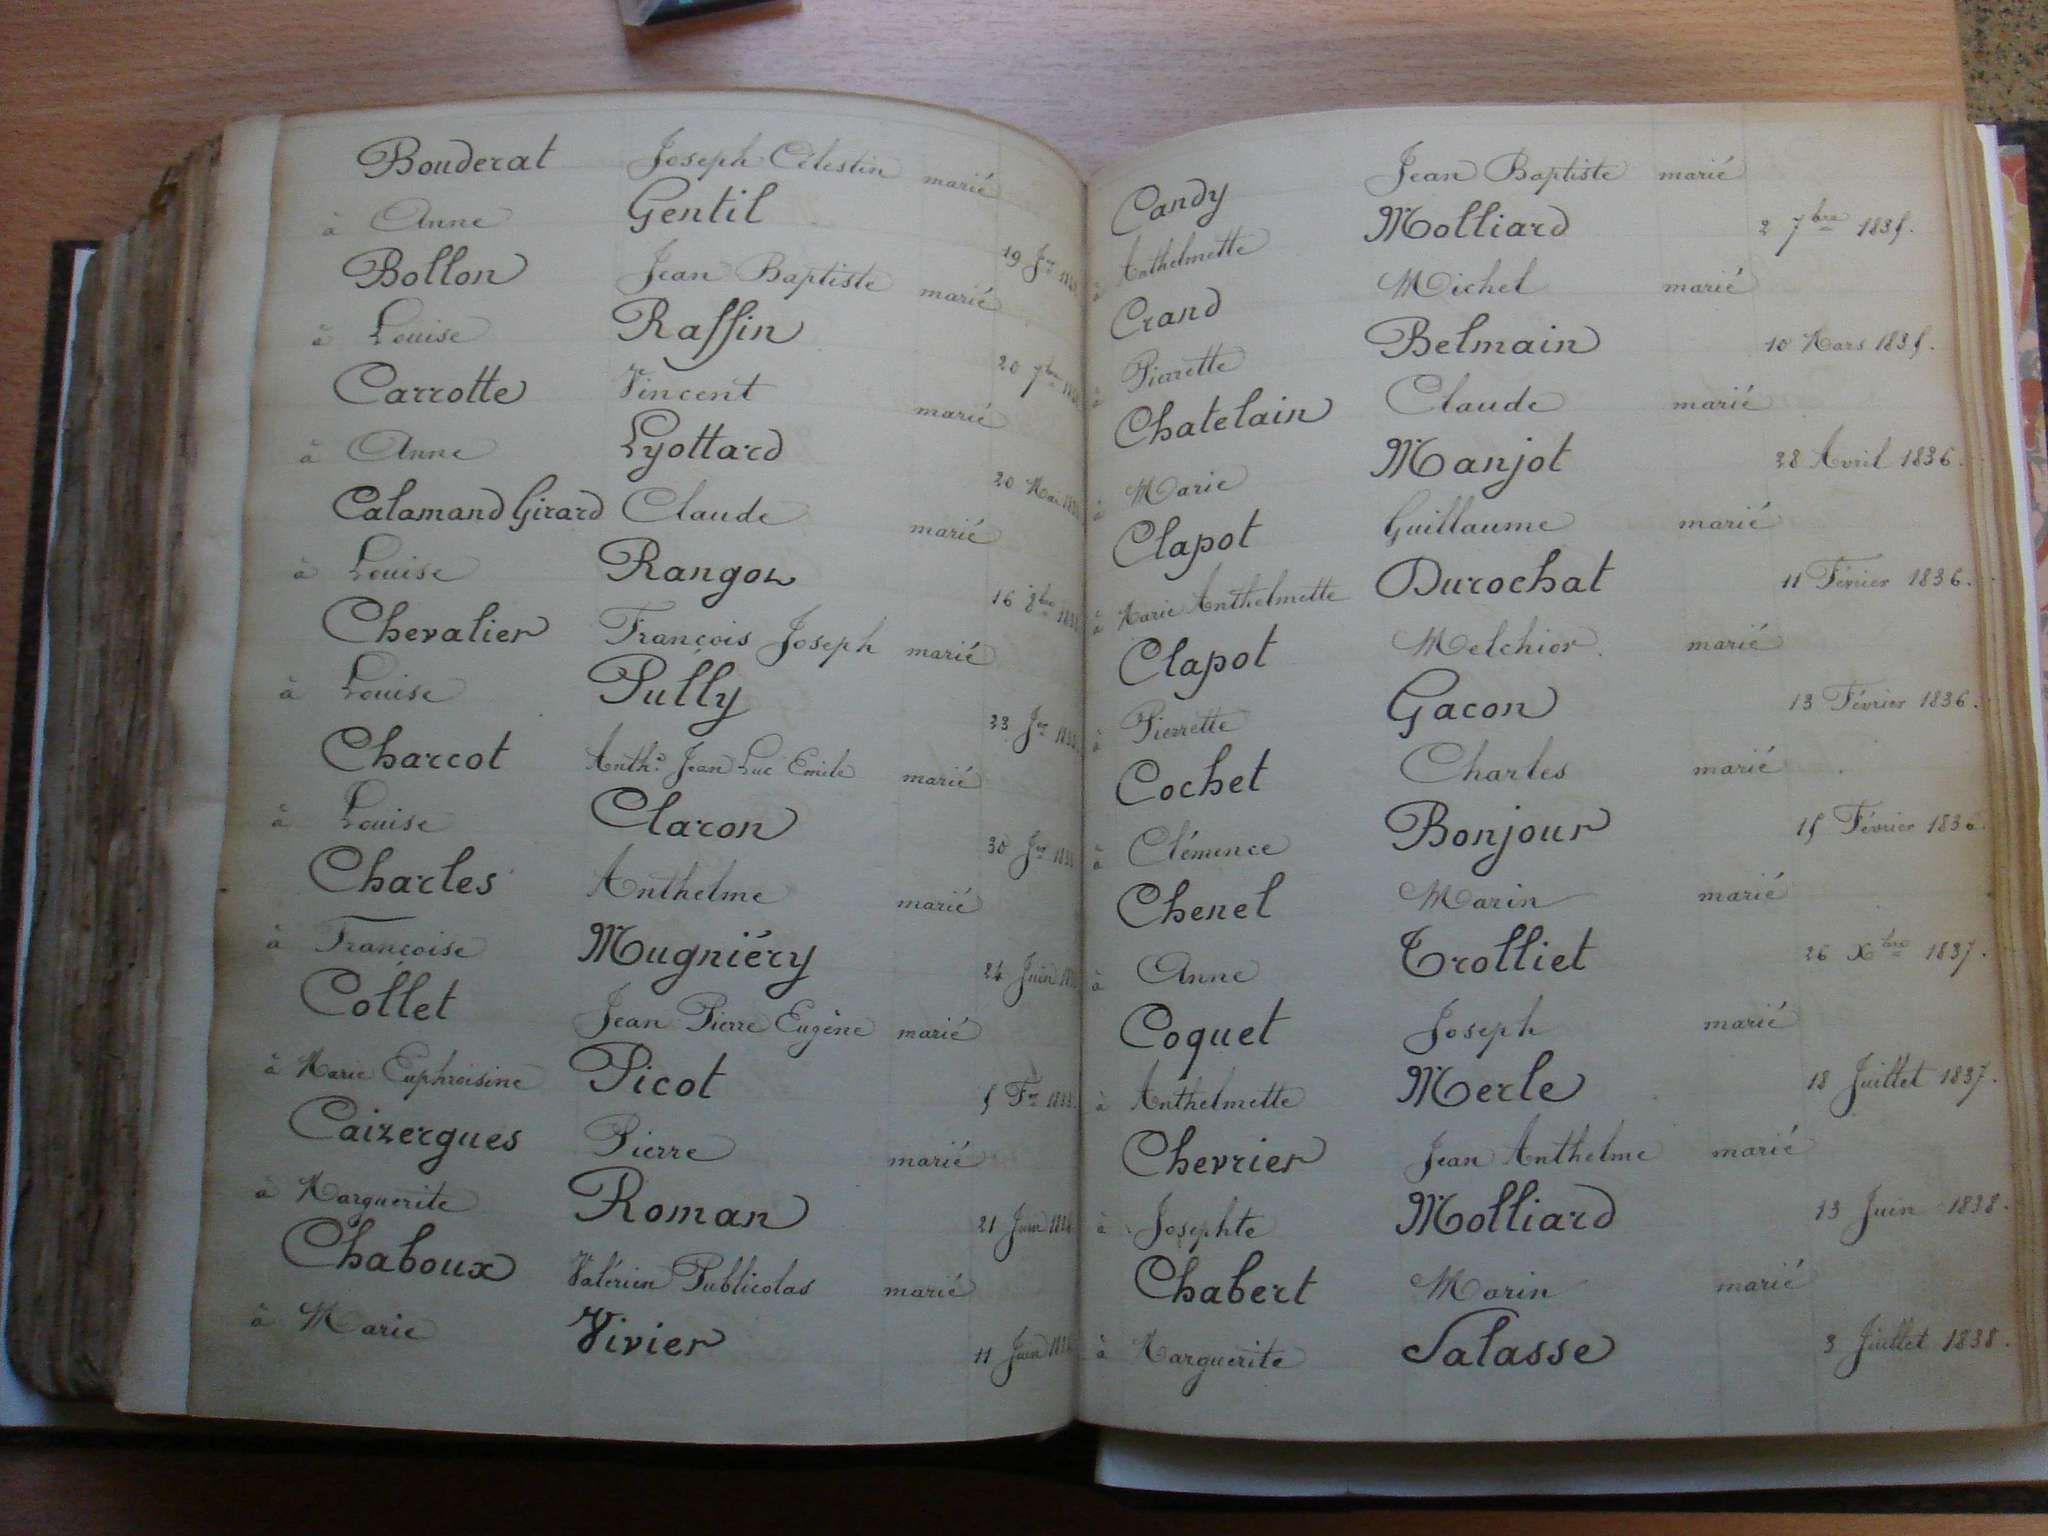 Bouderat Joseph Célestin marié
à Anne Gentil 19 Jer
Bollon Jean Baptiste marié
à Louise Raffin 20 7bre
Carrotte Vincent marié
à Anne Lyottard 20 Mai
Calamand Girard Claude marié
à Louise Rangoz 16 8bre
Chevalier François Joseph marié
à Louise Pully 23 Jer
Charcot Anthe Jean Luc Emile marié
à Louise Claron 30 Jer
Charles Anthelme marié
à Françoise Mugniéry 24 Juin
Collet Jean Pierre Eugène marié
à Marie Euphroisine Picot 5 Fer
Caizergues Pierre marié
à Marguerite Roman 21 Juin
Chaboux Valérien Publicolas marié
à Marie Vivier 11 Juin
Candy Jean Baptiste marié
à Anthelmette Molliard 2 7bre 1835.
Crand Michel marié
à Pierrette Belmain 10 Mars 1835.
Chatelain Claude marié
à Marie Manjot 28 Avril 1836.
Clapot Guillaume marié
à Marie Anthelmette Durochat 11 Février 1836.
Clapot Melchior marié
à Pierrette Gacon 13 Février 1836.
Cochet Charles marié
à Clémence Bonjour 15 Février 1836.
Chenel Marin marié
à Anne Trolliet 26 Xbre 1837.
Coquet Joseph marié
à Anthelmette Merle 18 Juillet 1837.
Chevrier Jean Anthelme marié
à Josephte Molliard 13 Juin 1838.
Chabert Marin marié
à Marguerite Salasse 3 Juillet 1838.